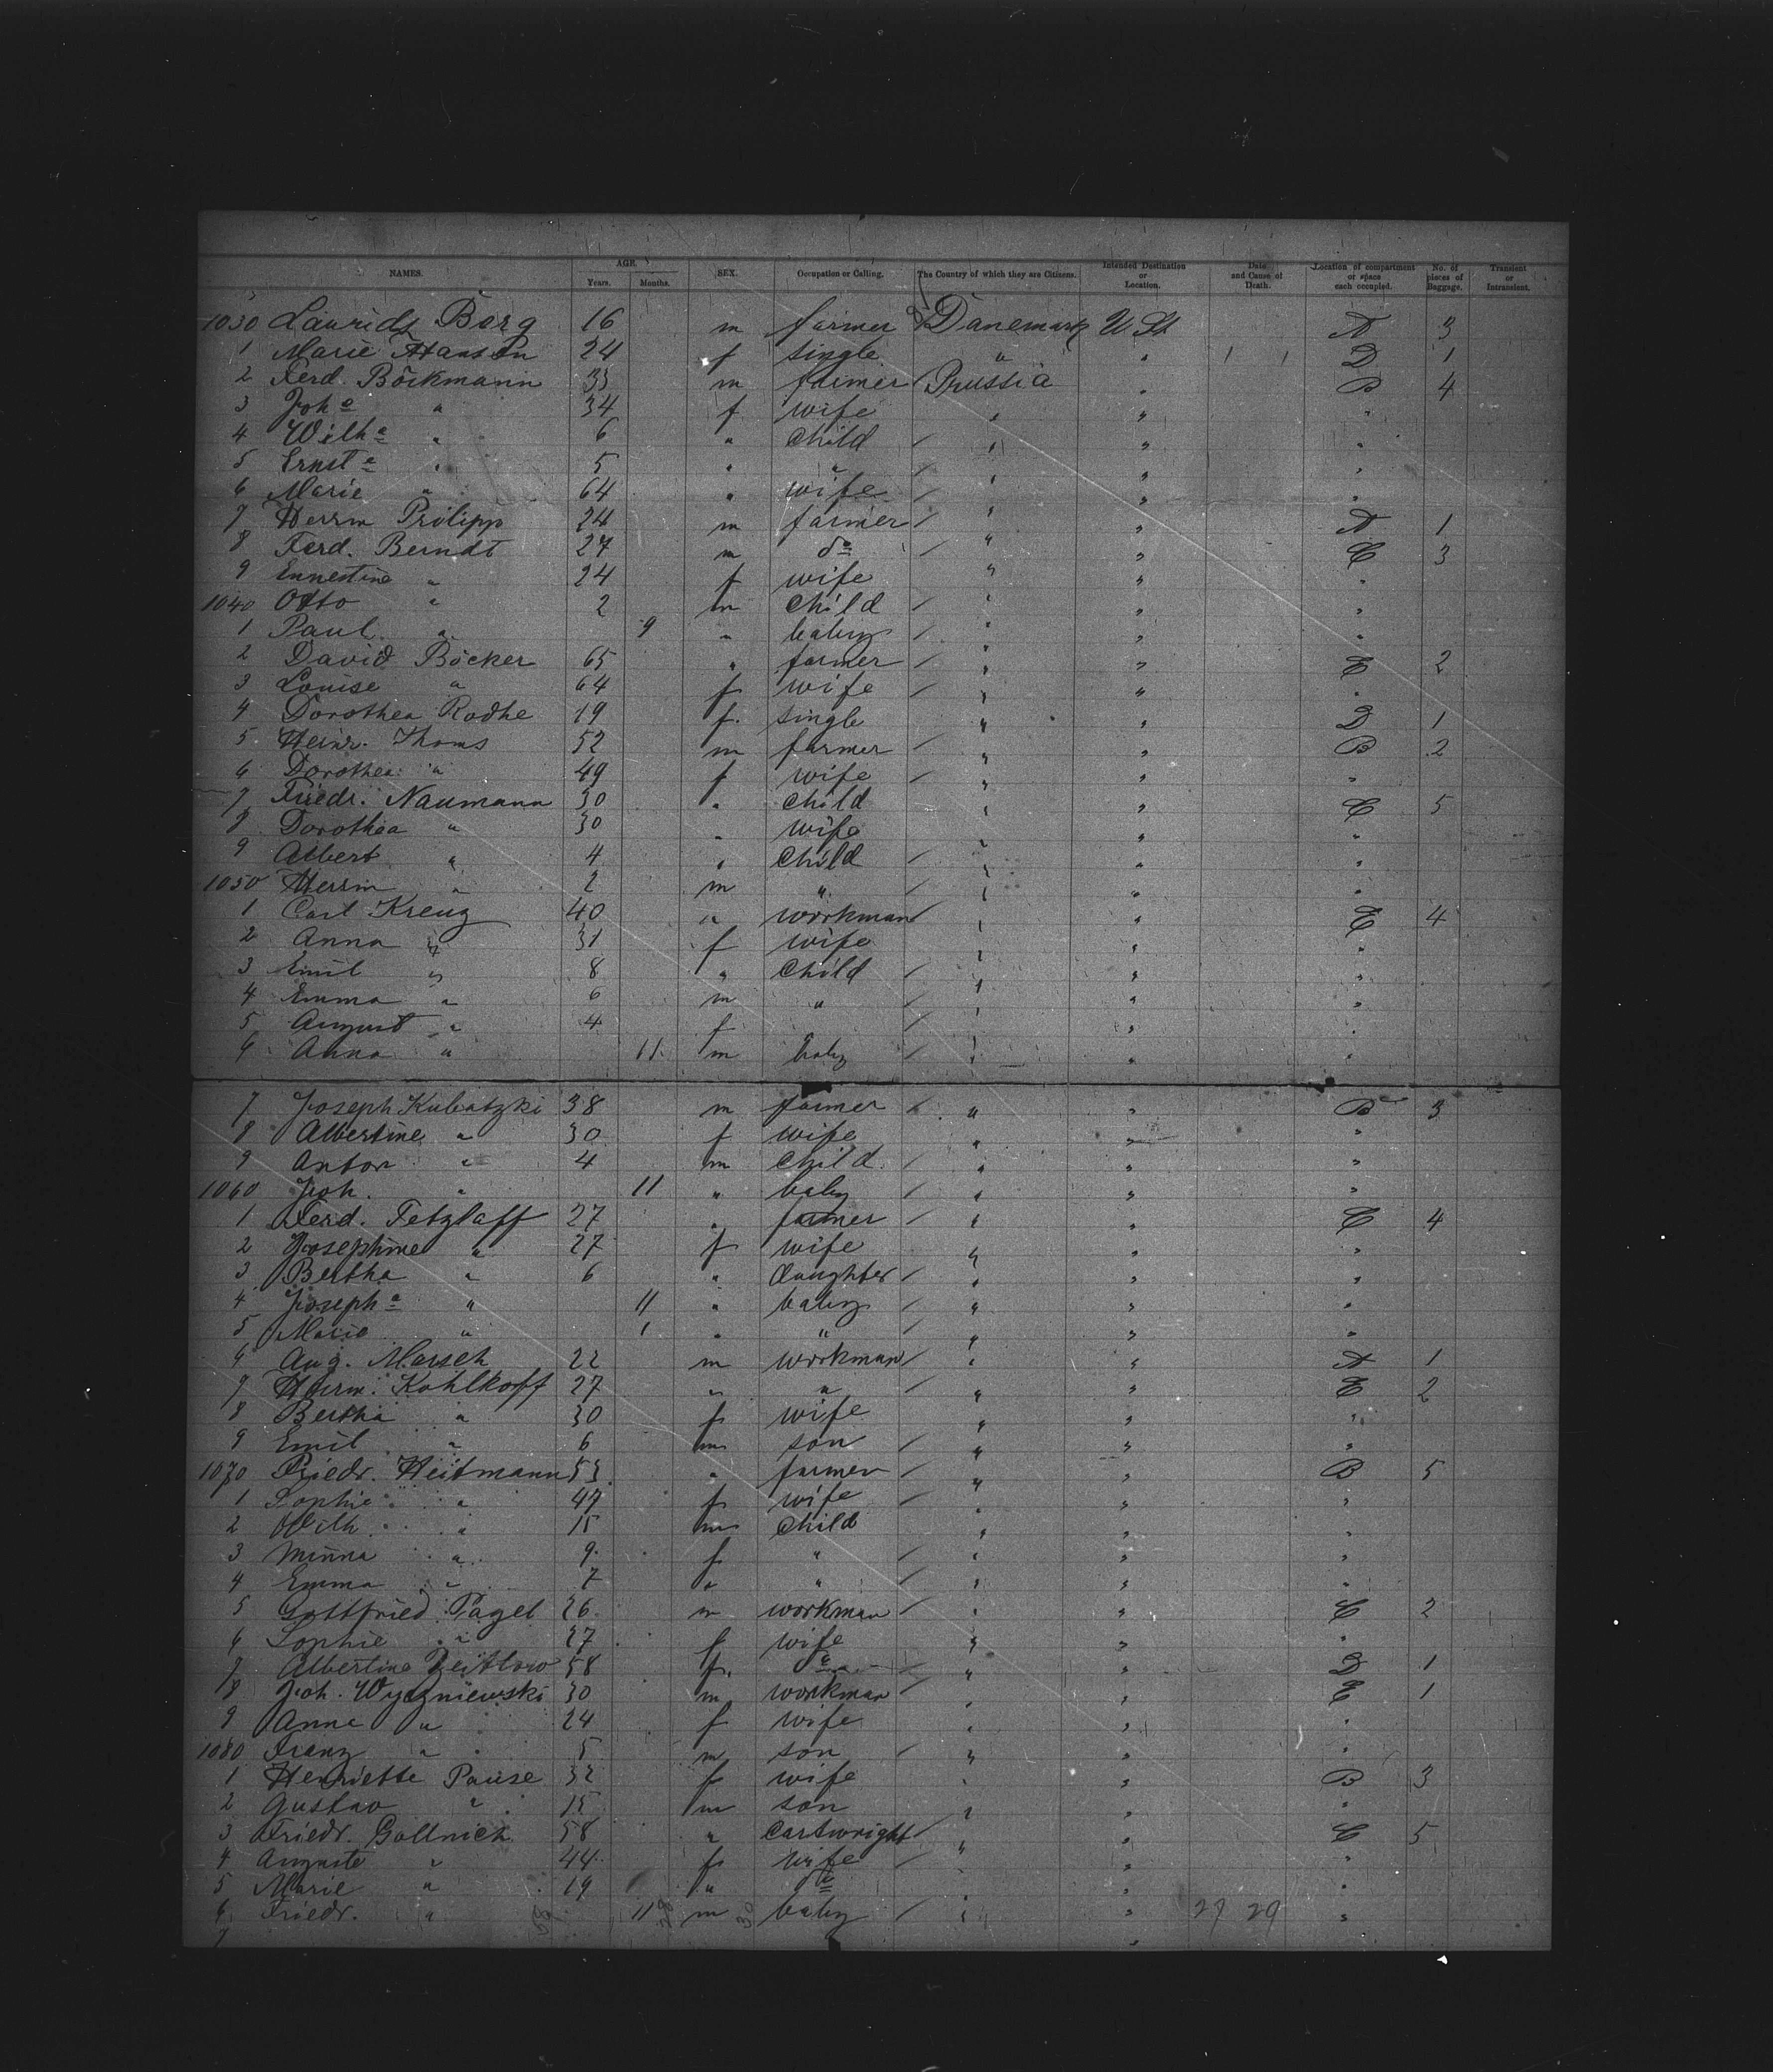 NAMES. AGE. Years. Months. SEX. Occupation or Calling. The Country of which they are Citizens. Intended Destination or Location. Date and Cause of Death. Location of compartment or space each occupied. No. of pieces of Baggage. Transient or Intransient.
1030 Laurids Berg 16 m farmer Danemark U. St A 3
1 Marie Hansen 24 f single " " D 1
2 Ferd. Böckmann 33 m farmer Prussia " B 4
3 Joh a " 34 f wife " " "
4 Wilh a " 6 " child " " "
5 Ernst e " 5 " " " " "
6 Marie " 64 " wife " " "
7 Herrm Philipp 24 m farmer " " A 1
8 Ferd. Berndt 27 m do " " C 3
9 Ernestine " 24 f wife " " "
1040 Otto " 2 m child " " "
1 Paul " 9 " baby " " "
2 David Böcker 65 " farmer " " E 2
3 Louise " 64 f wife " " "
4 Dorothea Rodhe 19 f. single " " D 1
5 Heinr. Thoms 52 m farmer " " B 2
6 Dorothea " 49 f wife " " "
7 Friedr. Naumann 30 " child " " C 5
8 Dorothea " 30 " wife " " "
9 Albert " 4 " child " " "
1050 Herrm " 2 m " " " "
1 Carl Kreuz 40 " workman " " E 4
2 Anna " 31 f wife " " "
3 Emil " 8 " child " " "
4 Emma " 6 m " " " "
5 August " 4 f " " "
6 Anna " 11 m baby " " "
7 Joseph Kubatzki 38 m farmer " " B 3
8 Albertine " 30 f wife " " "
9 Anton " 4 m child " " "
1060 Joh. " 11 " baby " " "
1 Ferd. Tetzlaff 27 " farmer " " C 4
2 Josephine " 27 f wife " " "
3 Bertha " 6 " daughter " " "
4 Joseph a " 11 " baby " " "
5 Marie " 1 " " " " "
6 Aug. Marsch 22 m workman " " A 1
7 Herm. Kohlhoff 27 " " " " E 2
8 Bertha " 30 f wife " " "
9 Emil " 6 m son " " "
1070 Friedr. Heitmann 53 " farmer " " B 5
1 Sophie " 47 f wife " " "
2 Wilh. " 15 m child " " "
3 Minna " 9 f " " " "
4 Emma " 7 " " " " "
5 Gottfried Pagel 26 m workman " " C 2
6 Sophie " 27 f wife " " "
7 Albertine 58 f. do " " D 1
8 Joh. Wyczniewski 30 m workman " " E 1
9 Anna " 24 f wife " " "
1080 Franz " 5 m son " " "
1 Henriette Pause 32 f wife " " B 3
2 Gustav " 15 m son " " "
3 Friedr. Gollnick 58 " cartwright " " C 5
4 Auguste " 44 f wife " " "
5 Marie " 19 " do " "
6 Friedr. " 11 m baby " " 29 29 "
7 "